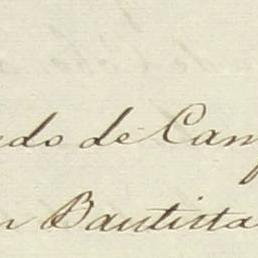 ado de Cam
n Bautista